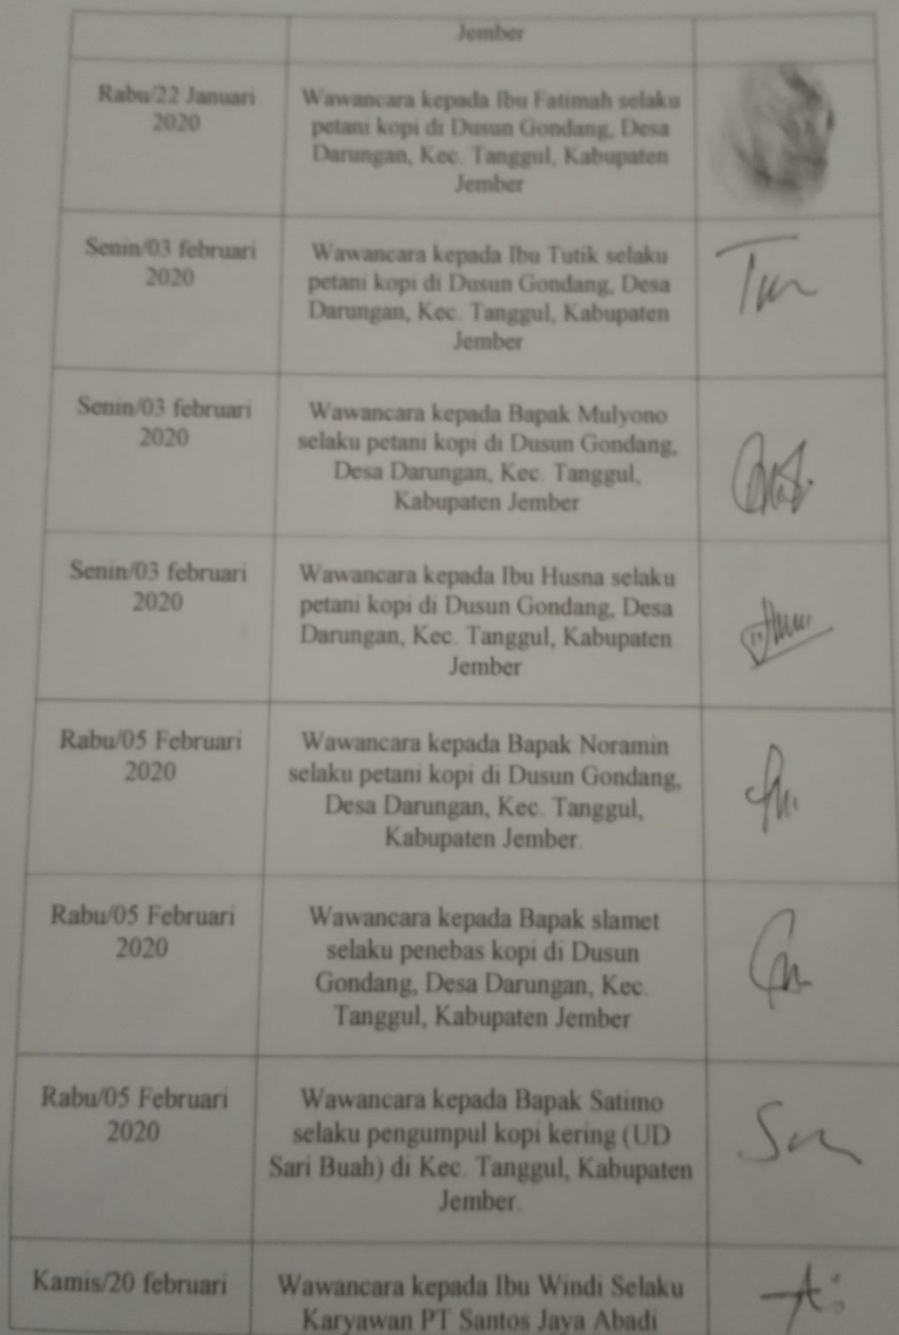 Jember
Rabu/22 Januari
2020
Wawancara kepada Ibu Fatimah selaku
petani kopi di Dusun Gondang, Desa
Darungan, Kec. Tanggul, Kabupaten
Jember
Senin/03 februari
2020
Wawancara kepada Ibu Tutik selaku
petani kopi di Dusun Gondang, Desa
Darungan, Kec. Tanggul, Kabupaten
Jember
Senin/03 februari
2020
Wawancara kepada Bapak Mulyono
selaku petani kopi di Dusun Gondang,
Desa Darungan, Kec. Tanggul,
Kabupaten Jember
Senin/03 februari
2020
Wawancara kepada Ibu Husna selaku
petani kopi di Dusun Gondang, Desa
Darungan, Kec. Tanggul, Kabupaten
Jember
Rabu/05 Februari
2020
Wawancara kepada Bapak Noramin
selaku petani kopi di Dusun Gondang,
Desa Darungan, Kec. Tanggul,
Kabupaten Jember.
Rabu/05 Februari
2020
Wawancara kepada Bapak slamet
selaku penebas kopi di Dusun
Gondang, Desa Darungan, Kec.
Tanggul, Kabupaten Jember
Rabu/05 Februari
2020
Wawancara kepada Bapak Satimo
selaku pengumpul kopi kering (UD
Sari Buah) di Kec. Tanggul, Kabupaten
Jember.
Kamis/20 februari
Wawancara kepada Ibu Windi Selaku
Karyawan PT Santos Jaya Abadi